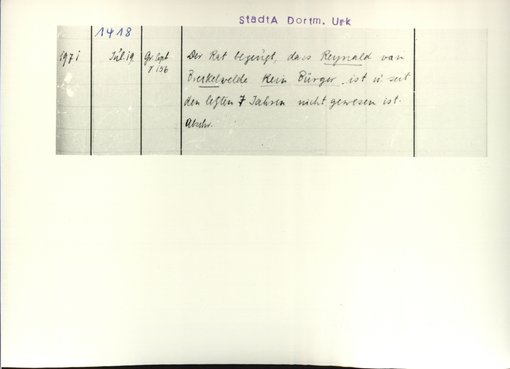 StadtA Dortm. Urk
1418
1971 Jul. 19 Gr. Cop. Der Rat bezeugt, dass Reynald van
f 156 Breckelvelde kein Bürger ist u. seit
den letzten 7 Jahren nicht gewesen ist.
Abschr.